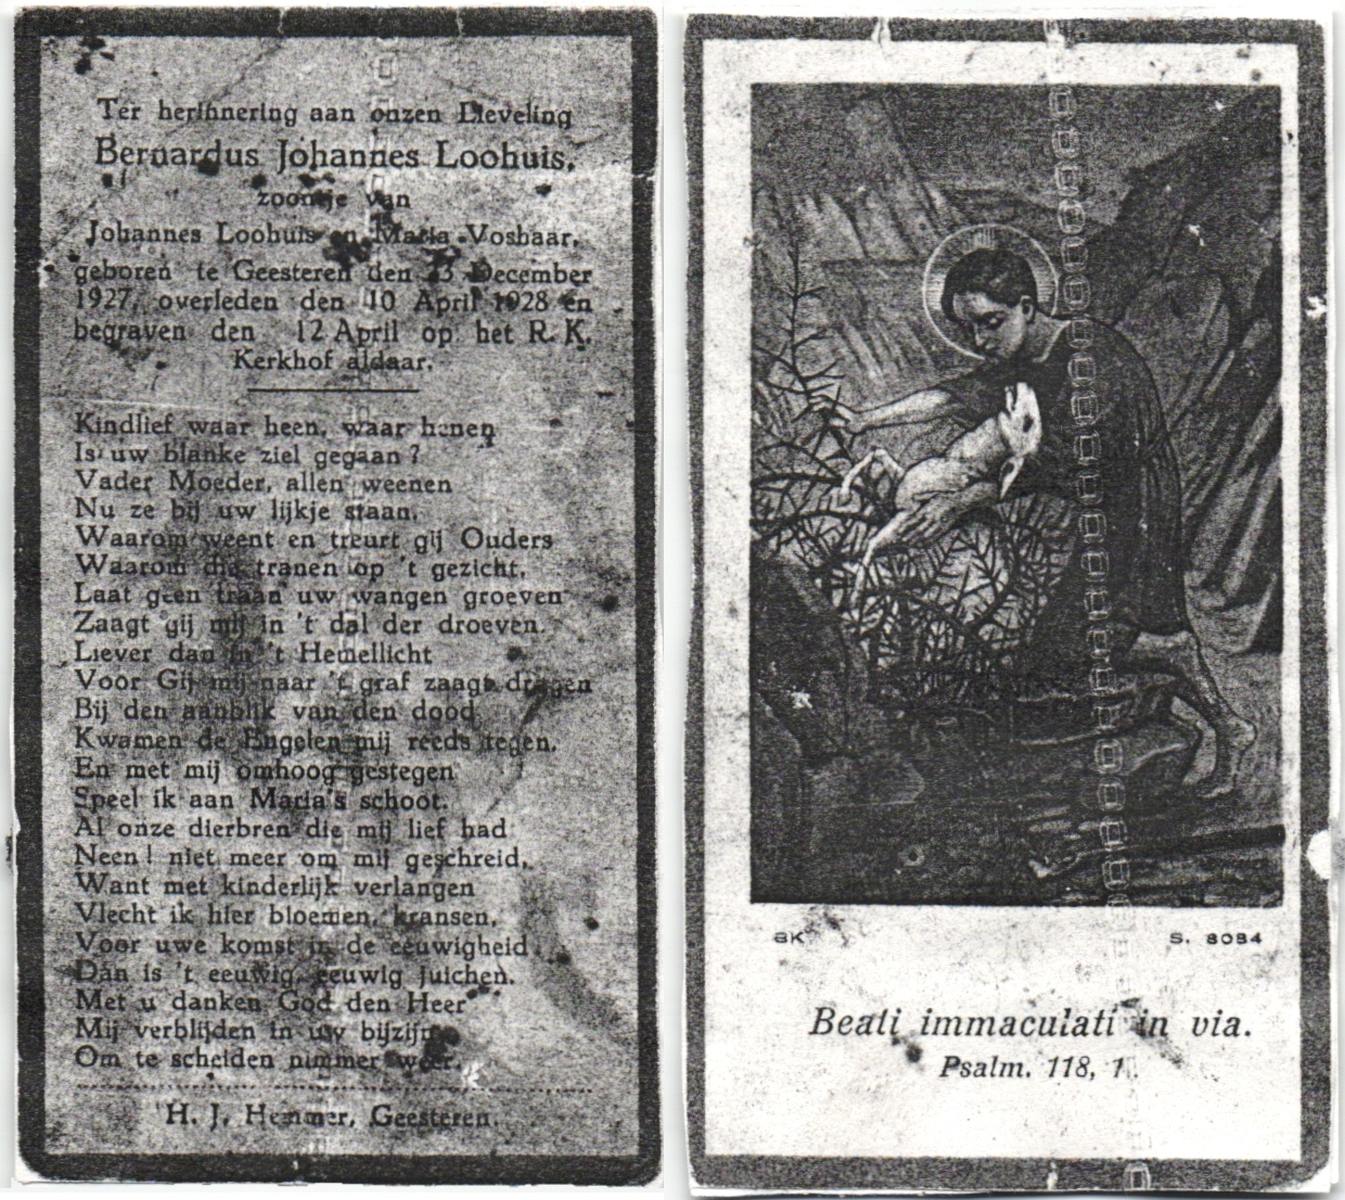 Ter herinnering aan onzen Lieveling
Bernardus Johannes Loohuis.
zoontje van
Johannes Loohuis en Maria Voshaar,
geboren te Geesteren den 23 December
1927, overleden den 10 April 1928 en
begraven den 12 April op het R. K.
Kerkhof aldaar.
Kindlief waar heen, waar henen
Is uw blanke ziel gegaan?
Vader Moeder, allen weenen
Nu ze bij uw lijkje staan.
Waarom weent en treurt gij Ouders
Waarom die tranen op 't gezicht,
Laat geen traan uw wangen groeven
Zaagt gij mij in 't dal der droeven.
Liever dan in 't Hemellicht
Voor Gij mij naar 't graf zaagt dragen
Bij den aanblik van den dood
Kwamen de Engelen mij reeds tegen.
En met mij omhoog gestegen
Speel ik aan Maria's schoot.
Al onze dierbren die mij lief had
Neen! niet meer om mij geschreid,
Want met kinderlijk verlangen
Vlecht ik hier bloemen, kransen,
Voor uwe komst in de eeuwigheid
Dan is 't eeuwig, eeuwig juichen.
Met u danken God den Heer
Mij verblijden in uw bijzijn
Om te scheiden nimmer weer.
H. J. Hemmer, Geesteren.
BK S. 8084
Beati immaculati in via.
Psalm. 118, 1.